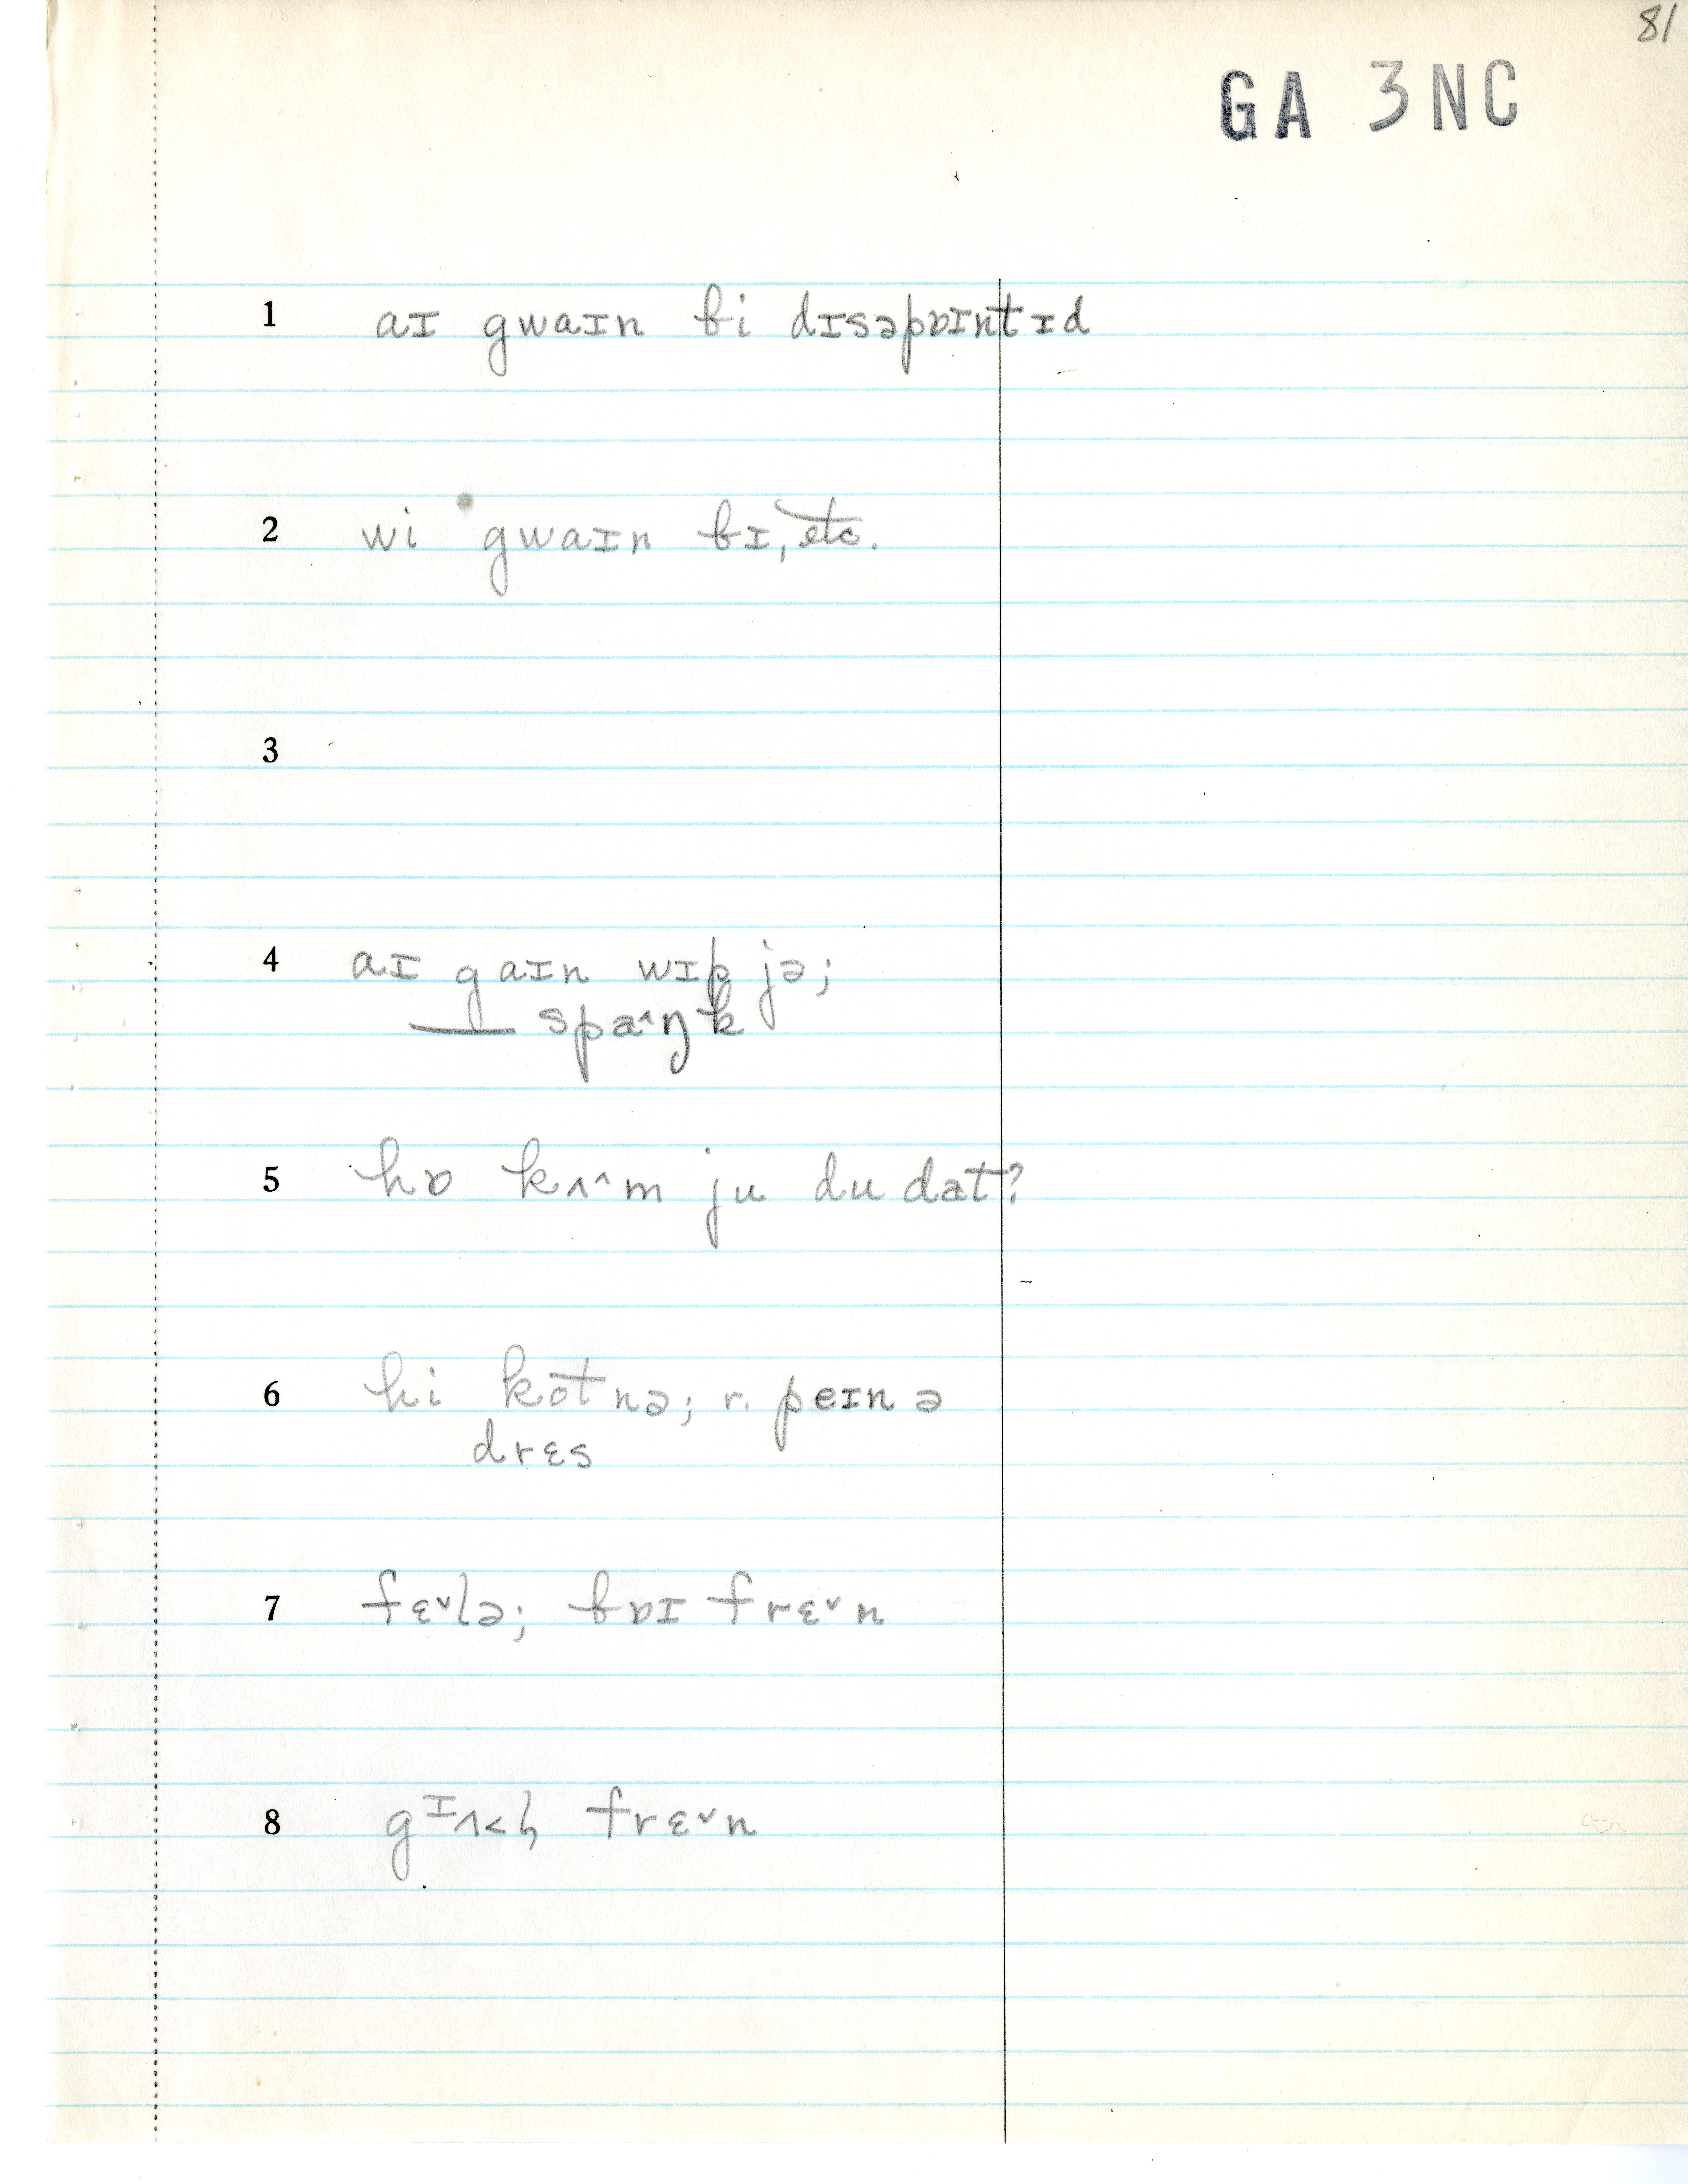 81
GA 3NC
1 aɪ gwaɪn bi dɪsəpɒɪntɪd
2 wi gwaɪn bɪ, etc.
3
4 aɪ gaɪn wɪp jə;
— spa˄ŋk
5 hɒ kʌ˄m ju du dat?
6 hi kotnə; r. peɪn ə
drɛs
7 fɛ˅lə; bɒɪ frɛ˅n
8 frɛ˅n